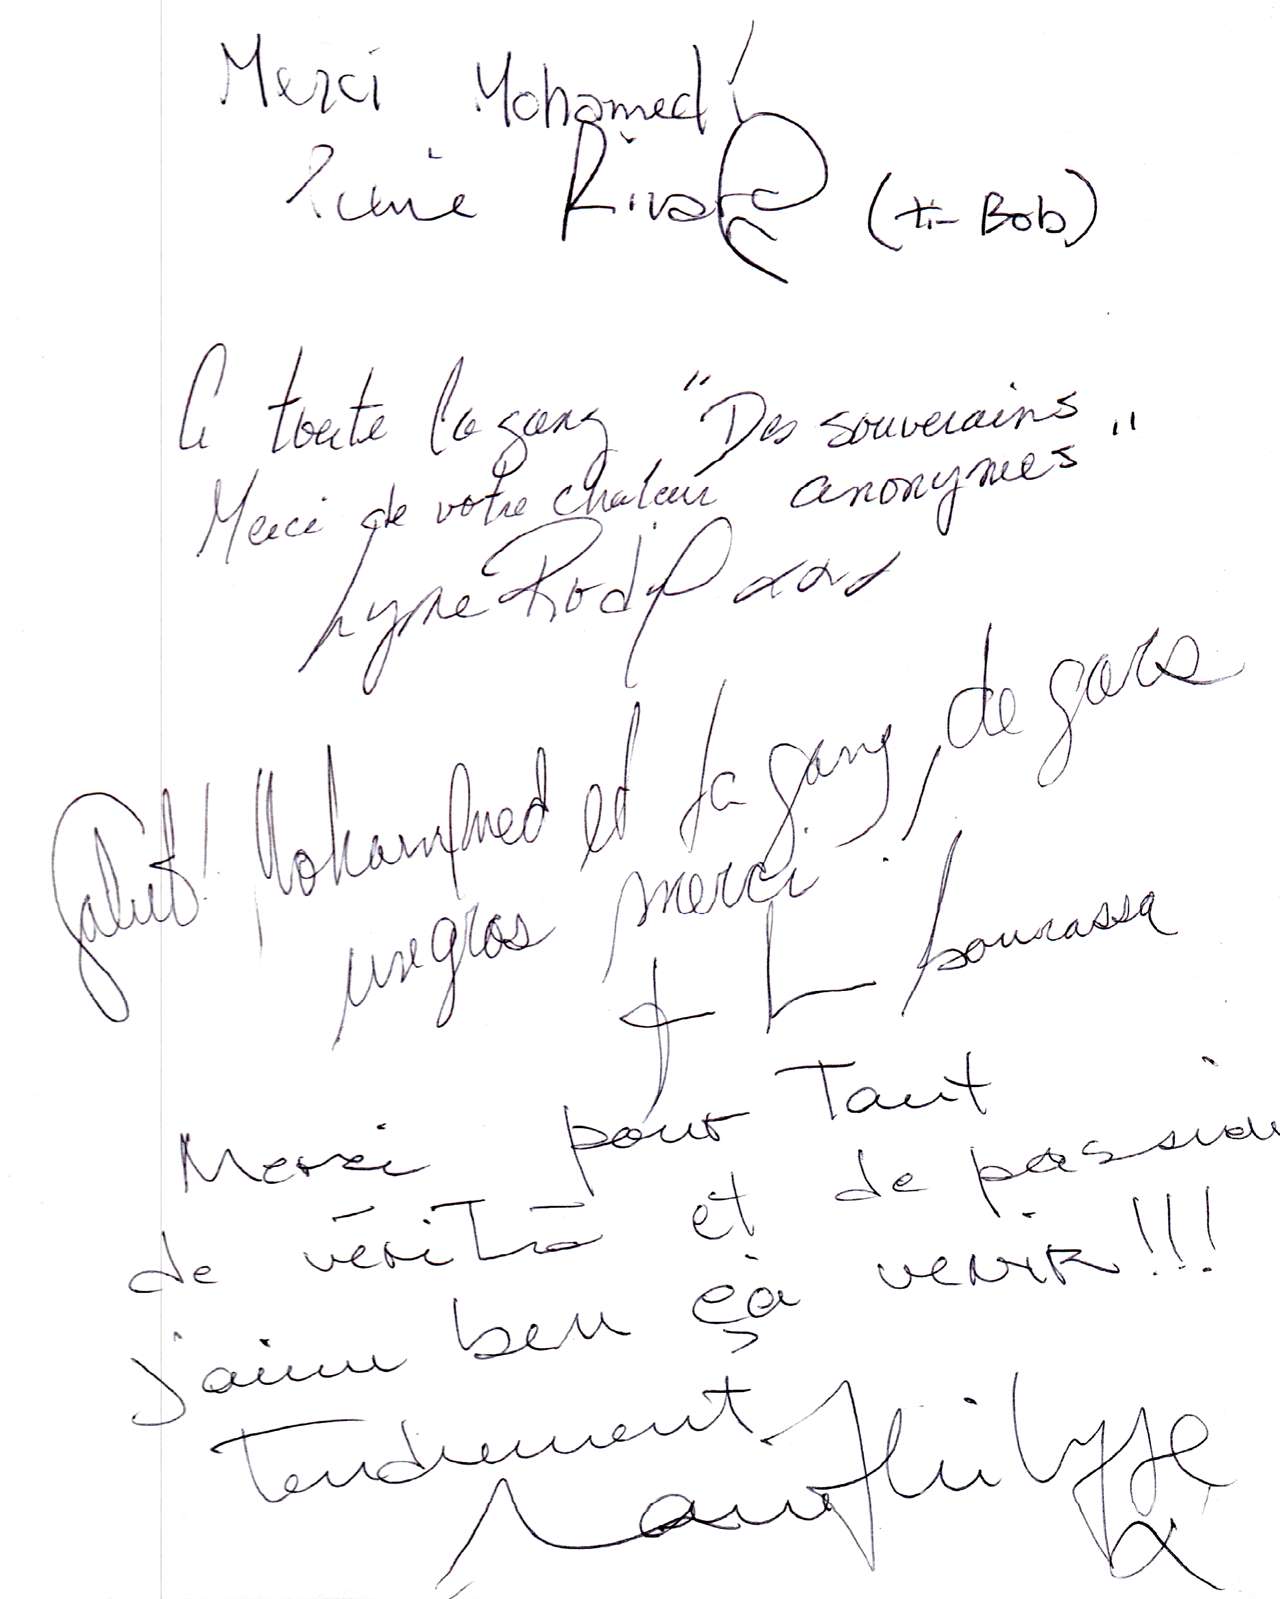 Merci Mohamed!
Rivard (ti-Bob)
À toute la gang "Des souverains
anonymes"
Merci de votre chaleur
Lyne Rodi xxx
Salut! Mohammed et ta gang, de gars
un gros merci
Bourassa
Merci pour tant
de vérité et de passion
j'aime ben çà venir!!!
Tendrement